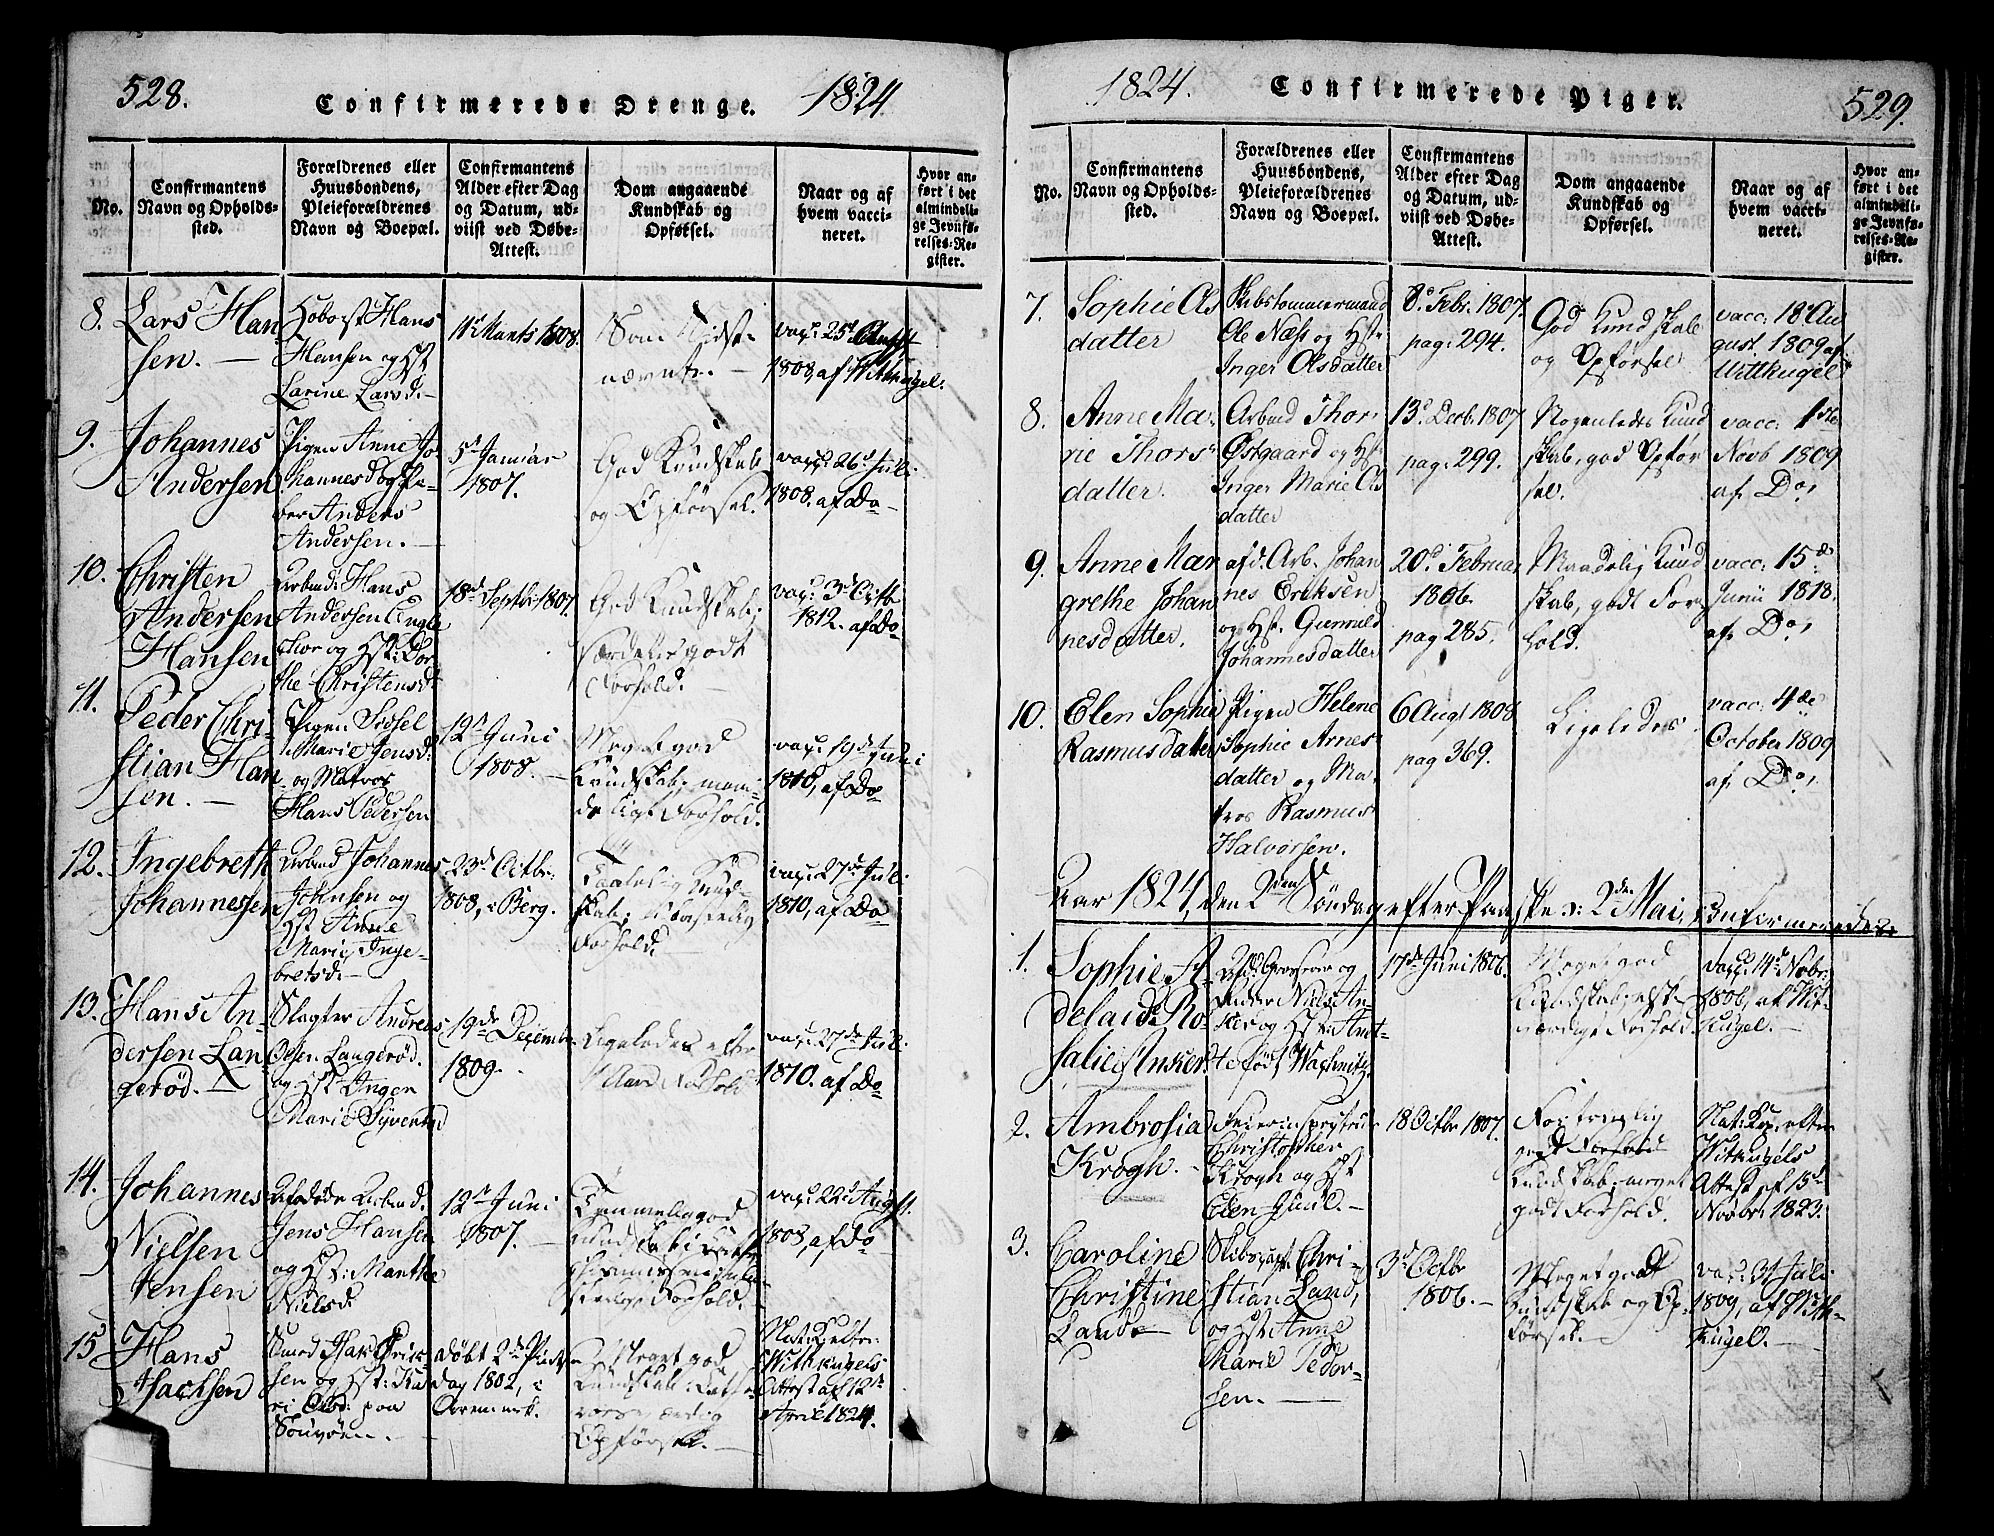 528.
Confirmerede Drenge.
1824.
No.
Confirmantens
Navn og Opholds-
sted.
Forældrenes eller
Huusbondens,
Pleieforældrenes
Navn og Boepæl.
Confirmantens
Alder efter Dag
og Datum, ud-
viist ved Døbe-
Attest.
Dom angaaende
Kundskab og
Opførsel.
Naar og af
hvem vacci-
neret.
Hvor an-
ført i det
almindeli-
ge Jevnfø-
relses-Re-
gister.
8.
Lars Han
sen. —
Hoboist Hans
Hansen og Hst
Larine Larsd. —
11t Marts 1808.
Som sidst
nævnte. —
1808, af Witkugel.
9.
Johannes
Andersen
Pigen Anne Jo-
hannesd og
Anders
Andersen. —
5t Januar
1807.
God Kundskab
og Opførsel.
vacc: 26d Juli
1808. af Do —
10.
Christen
Andersen
Hansen
Arbmd: Hans
Andersen
og Hst: Dor
the Christensd
18d Septbr 1807.
God Kundskab,
særdeles godt
Forhold. —
vacc: 3d Octb
1812. af Do
11.
Peder Chri-
stian Han
sen. —
Pigen Sidsel
Marie Jensd:
og Matros
Hans Pedersen
12t Juni
1808. —
Meget god
Kundskab,
Forhold.
1810, af Do
12.
Ingebreth
Johannesen
Arbmd Johannes
Johnsen og
Hst Anne
Marie Inge-
bretsd. —
23d Octbr:
1808, i Berg.
Taalelig Kund-
skab,
Forhold. —
vacc: 27d Juli
1810, af Do
13.
Hans An-
dersen Lan-
gerød. —
Slagter Andreas
Olsen Langerød.
og Hst Inger
Marie Syvertsd
19de December
1809.
Ligeledes
Forhold
vacc: 27de Juli
1810. af Do
14.
Johannes
Nielsen
Jensen
Afdøde Arbmd.
Jens Hansen
og Hst: Marthe
Nielsd:
12t Juni
1807. —
Temmelig god
Kundskab i
Forhold.
vacc: 22d Augst.
1803, af Do
15
Hans
Isachsen
Smed Isak Erik-
sen og Hst: Ka
ri Olsd: paa
døbt 2d Pints
dag 1802, i
Aremark.
Meget god
Kundskab
Opførsel. —
Nat: K. efter
Witkugels
Attest af 12te
April 1824.
1824.
Confirmerede Piger.
529.
No.
Confirmantens
Navn og Opholds-
sted.
Forældrenes eller
Huusbondens,
Pleieforældrenes
Navn og Boepæl.
Confirmantens
Alder efter Dag
og Datum, ud-
viist ved Døbe-
Attest.
Dom angaaende
Kundskab og
Opførsel.
Naar og af
hvem vacci-
neret.
Hvor an-
ført i det
almindeli-
ge Jevnfø-
relses-Re-
gister.
7.
Sophie Ols
datter
Skibstømmermand
Ole Næss og Hst:
Inger Olsdatter
8d Febr. 1807.
pag: 294.
God Kundskab
og Opførsel
vacc: 18d Au
gust 1809 af
Wittkugel
8.
Anne Ma-
rie Thors
datter.
Arbmd Thor
Østgaard og Hst
Inger Marie Ols
datter
13d Decb. 1807
pag: 299.
Nogenledes Kund
skab, god Opfør
sel.
vacc: 1ste
Novb 1809
af Do,
9.
Anne Mar
grethe Johan
nesdatter.
afd. Arb. Johan
nes Eriksen
og Hst. Gunnild
Johannesdatter
20d Februar
1806.
pag 285.
Maadelig Kund
skab, godt For
hold.
vacc: 15de
Junii 1818.
af Do,
10.
Elen Sophie
Rasmusdatter
Pigen Helene
Sophie Arnes
datter og Ma
tros Rasmus
Halvorsen.
6 Augt 1808
pag 369.
Ligeledes
vacc: 4de
October 1809
af Do,
Aar 1824, den 2den Söndag efter Paaske ɔ: 2den Mai, confirmerede:
1.
Sophie A-
delaide Ro-
salie Anker
og
Niels An-
ker og Hst: Anet-
te født Wachenitz
17de Juni 1806.
Meget god
Kundskab,
Forhold
vacc: 14d Novbr:
1806, af Wit-
kugel. —
2.
Ambrosia
Krogh. —
Christopher
Krogh og Hst
Elen Juul. —
18 Octbr 1807.
Fortrinlig
godt Forhold
Kundskab, meget
godt Forhold.
Nat: Kop. efter
Witkugels
Attest af 15d
Novbr 1823.
3.
Caroline
Christine
Lande
Chri-
stian Land,
og Hst: Anne
Marie Peder-
sen. —
3d Octbr
1806. —
Meget godt
Kundskab og Op-
førsel. —
vacc: 31 Juli
1809, af Wit-
kugel. —